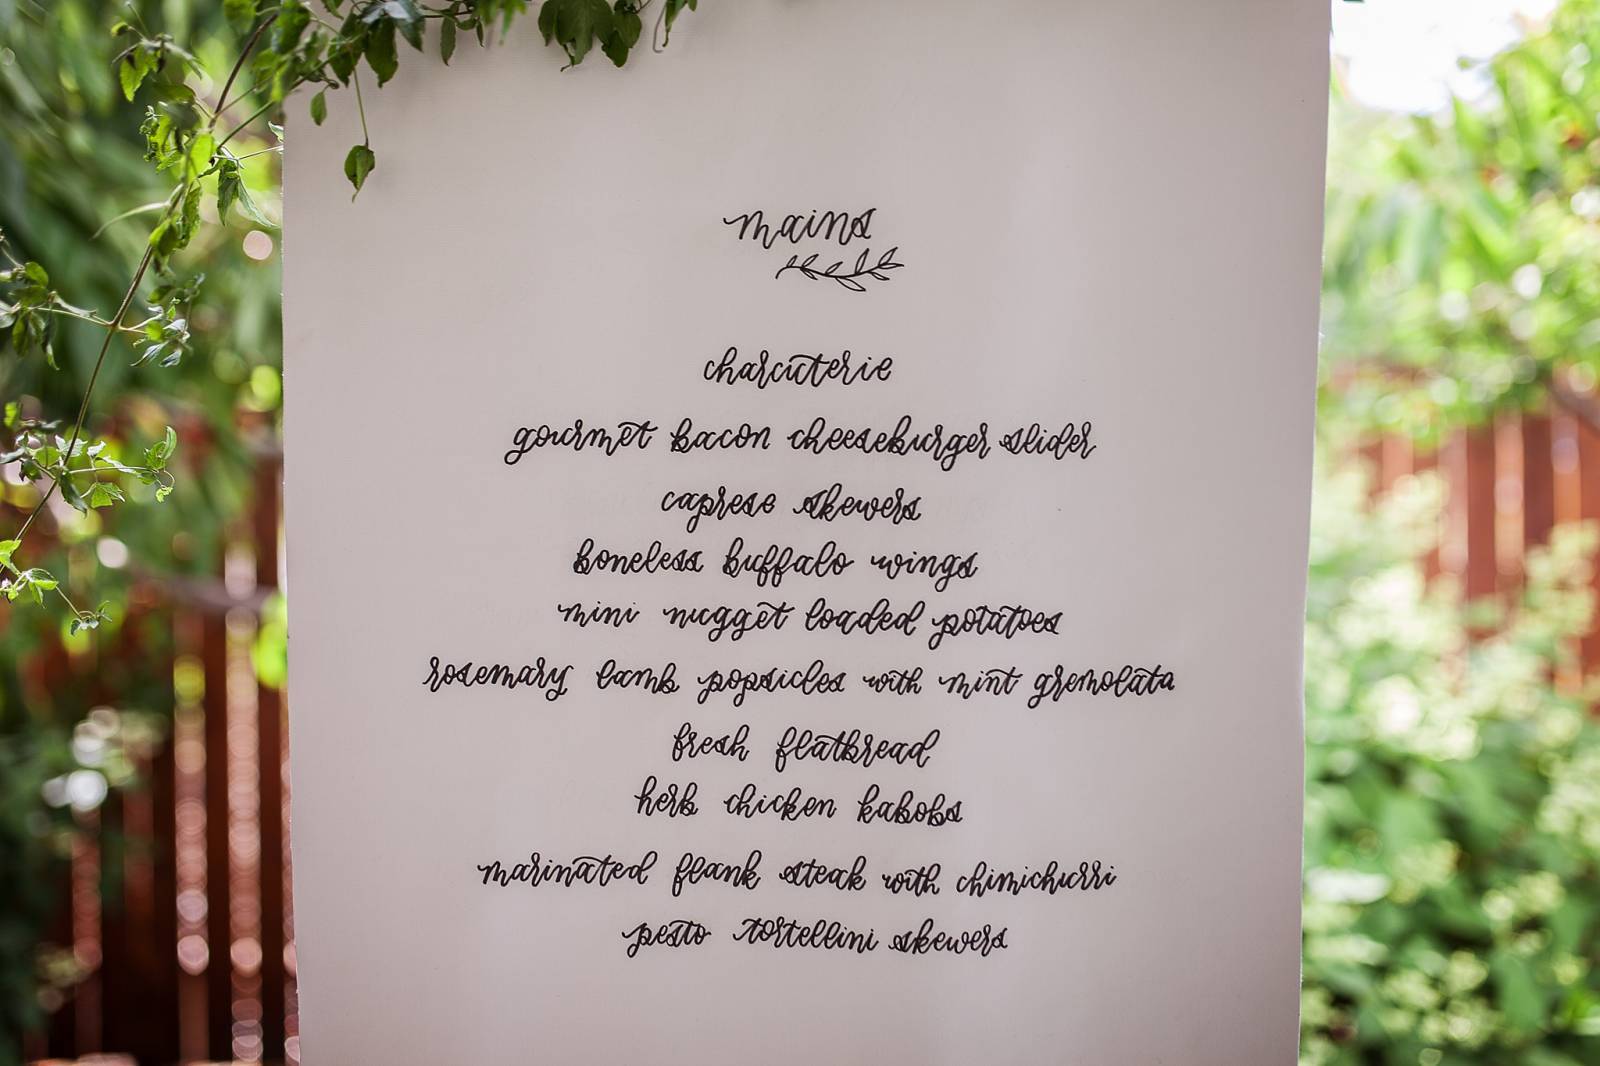 mains
charcuterie
gourmet bacon cheeseburger slider
caprese skewers
boneless buffalo wings
mini nugget loaded potatoes
rosemary lamb popsicles with mint gremolata
fresh flatbread
herb chicken kabobs
marinated flank steak with chimichurri
pesto tortellini skewers